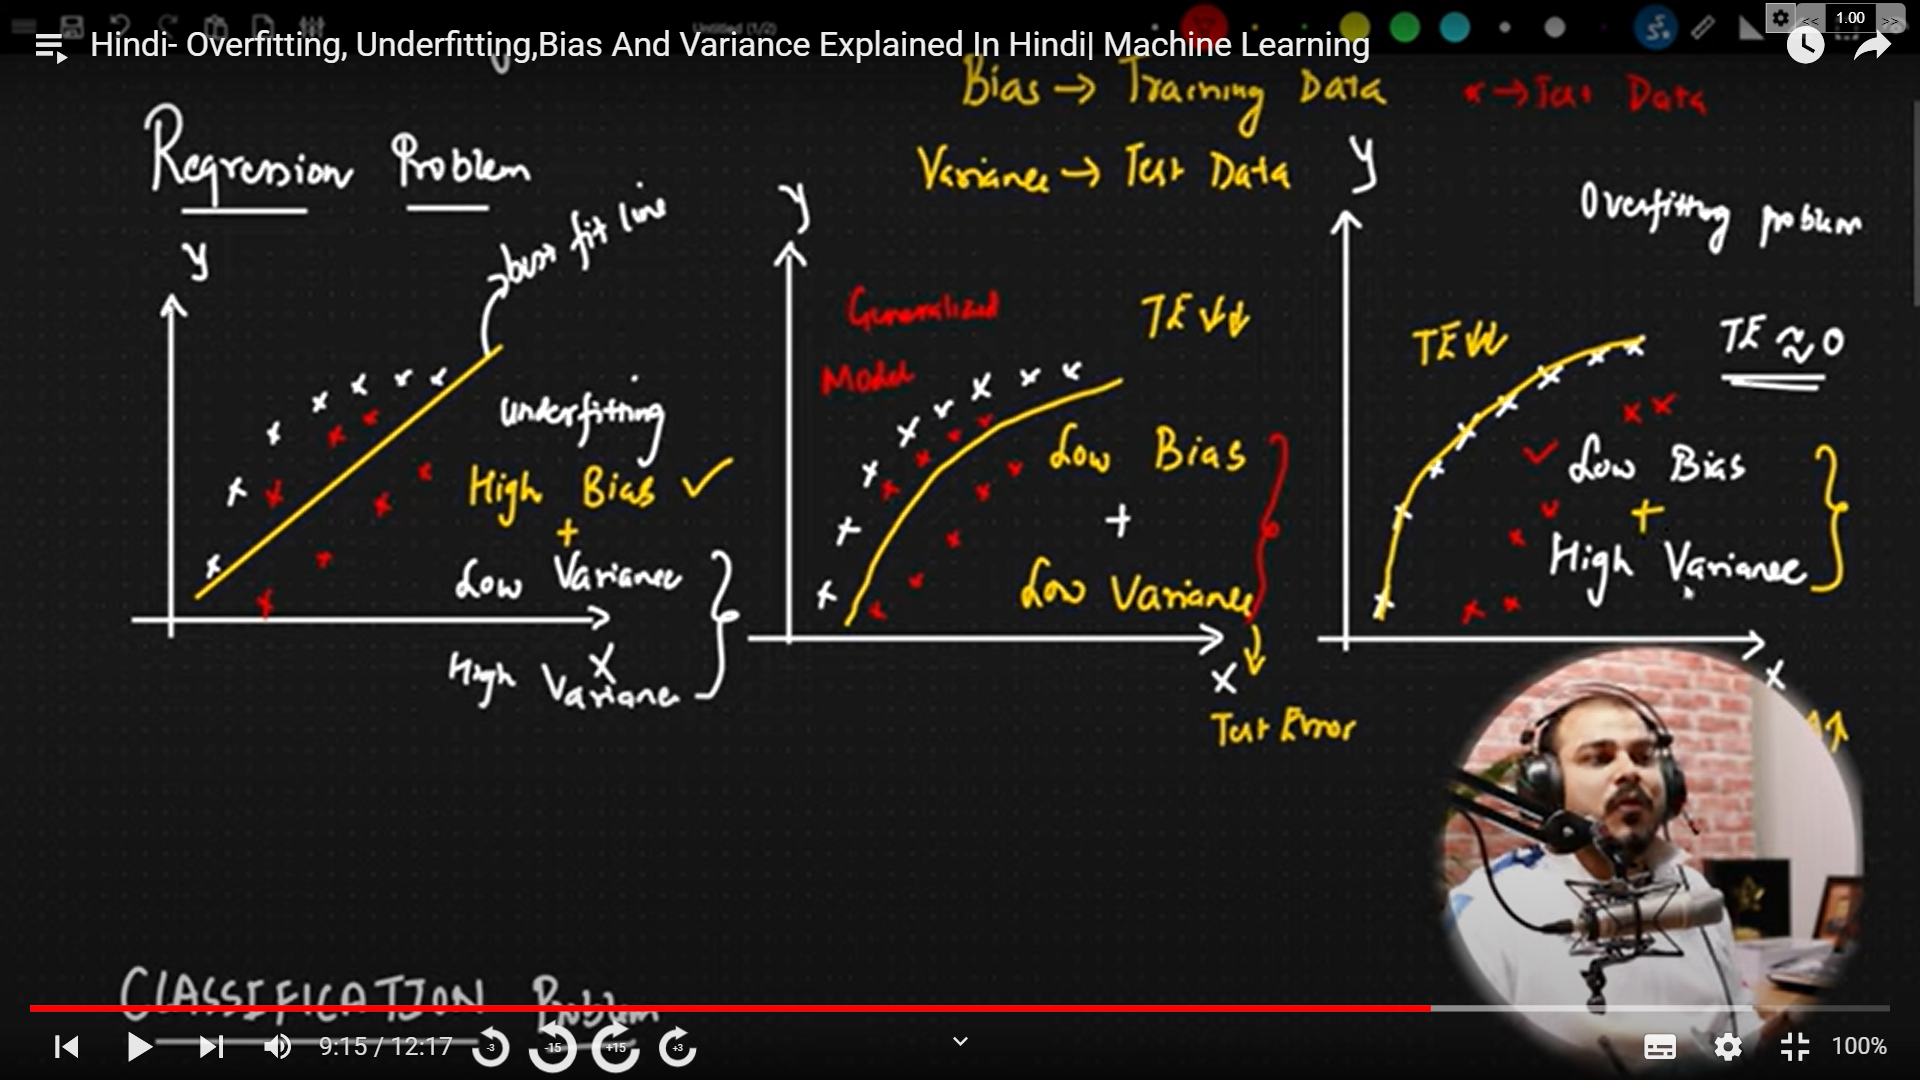 Untitled (1/2)
<< 1.00 >>
Hindi- Overfitting, Underfitting,Bias And Variance Explained In Hindi| Machine Learning
Bias → Training Data
x → Test Data
Variance → Test Data
Regression Problem
y
best fit line
underfitting
High Bias ✓
+
Low Variance
High Variance
X
y
Generalized
Model
TE ↓↓
Low Bias
+
Low Variance
↓
X
Test Error
y
Overfitting problem
TE ↓↓
TE ≈ 0
Low Bias
+
High Variance
x
CLASSIFICATION Problem
9:15 / 12:17
-3
-15
+15
+3
100%